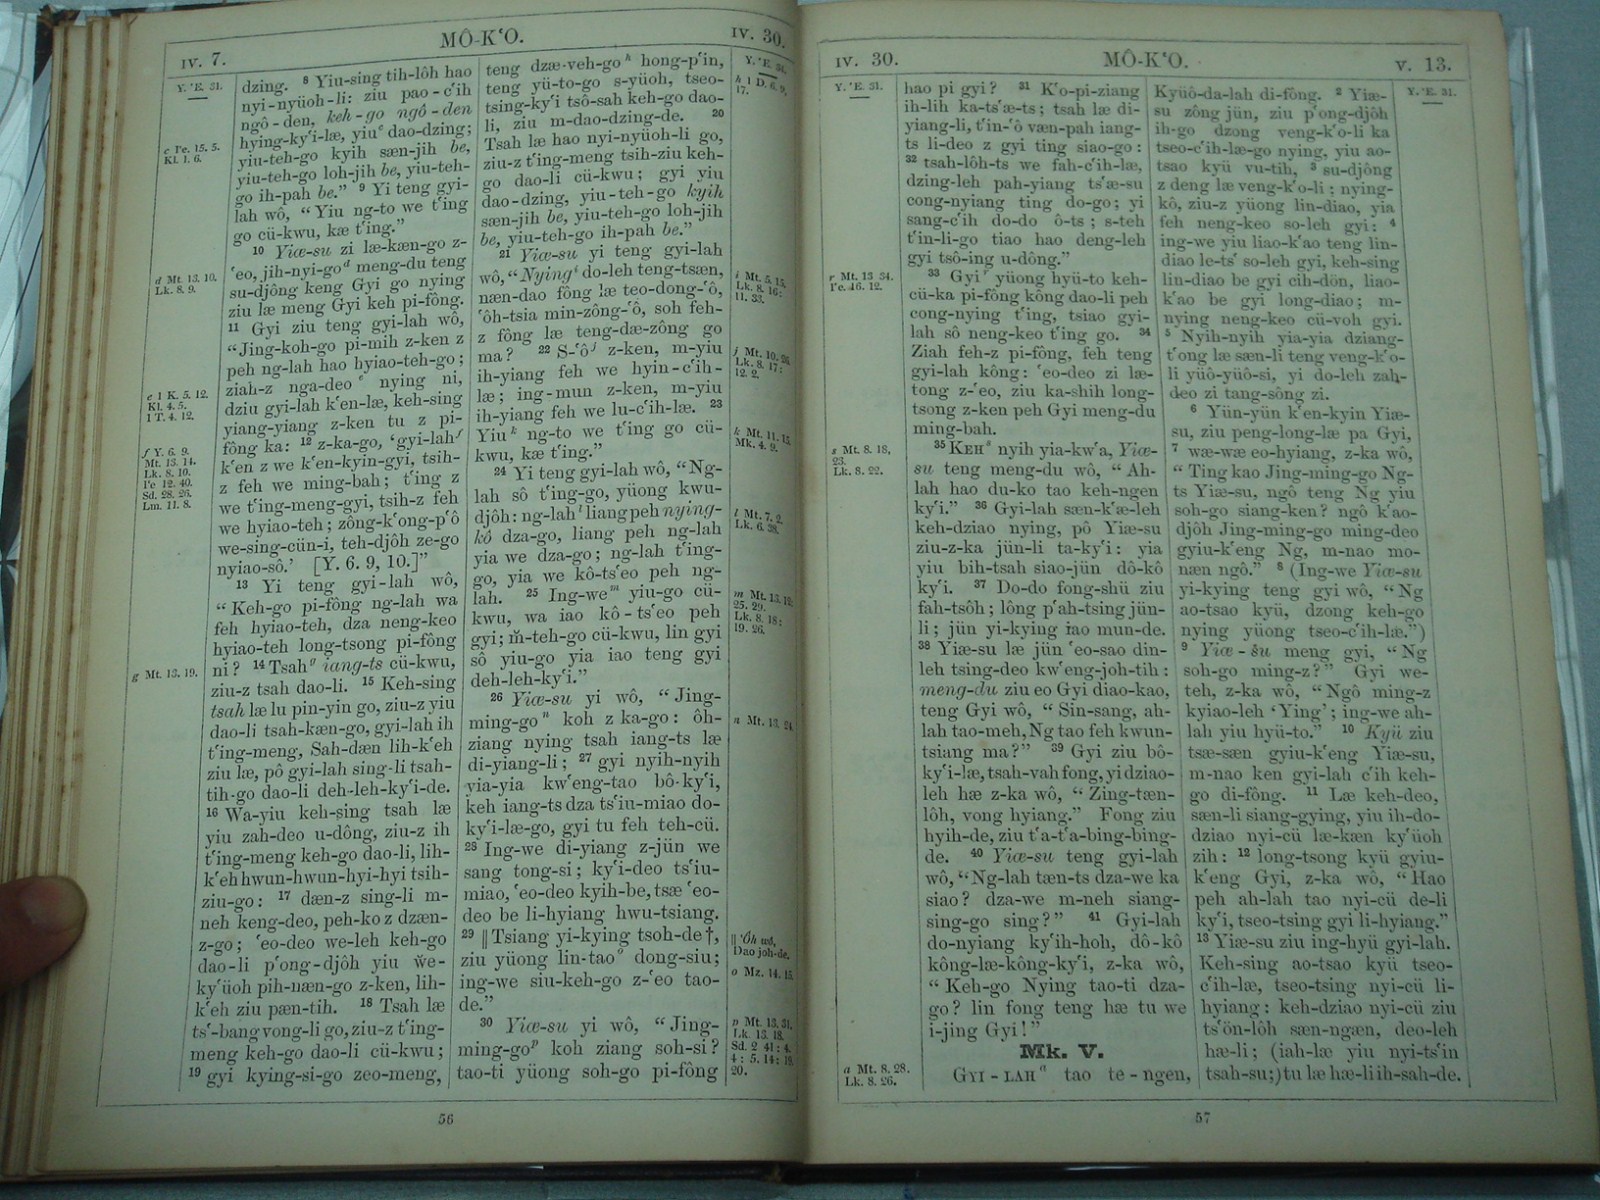 IV. 7.
MÔ-K‘O.
IV. 30.
Y. ‘E. 31.
c l‘e. 15. 5.
Kl. 1. 6.
d Mt. 13. 10.
Lk. 8. 9.
e 1 K. 5. 12.
Kl. 4. 5.
1 T. 4. 12.
f Y. 6. 9.
Mt. 13. 14.
Lk. 8. 10.
l‘e 12. 40.
Sd. 28. 26.
Lm. 11. 8.
g Mt. 13. 19.
dzing. ⁸ Yiu-sing tih-lôh hao
nyi-nyüoh-li: ziu pao-c‘ih
ngô-den, keh-go ngô-den
hying-ky‘i-læ, yiuᶜ dao-dzing;
yiu-teh-go kyih sæn-jih be,
yiu-teh-go loh-jih be, yiu-teh-
go ih-pah be.” ⁹ Yi teng gyi-
lah wô, “Yiu ng-to we t‘ing
go cü-kwu, kæ t‘ing.”
¹⁰ Yiæ-su zi læ-kæn-go z-
‘eo, jih-nyi-goᵈ meng-du teng
su-djông keng Gyi go nying
ziu læ meng Gyi keh pi-fông.
¹¹ Gyi ziu teng gyi-lah wô,
“Jing-koh-go pi-mih z-ken z
peh ng-lah hao hyiao-teh-go;
ziah-z nga-deoᵉ nying ni,
dziu gyi-lah k‘en-læ, keh-sing
yiang-yiang z-ken tu z pi-
fông ka: ¹² z-ka-go, ‘gyi-lahᶠ
k‘en z we k‘en-kyin-gyi, tsih-
z feh we ming-bah; t‘ing z
we t‘ing-meng-gyi, tsih-z feh
we hyiao-teh; zông-k‘ong-p‘ô
we-sing-cün-i, teh-djôh ze-go
nyiao-sô.’ [Y. 6. 9, 10.]”
¹³ Yi teng gyi-lah wô,
“Keh-go pi-fông ng-lah wa
feh hyiao-teh, dza neng-keo
hyiao-teh long-tsong pi-fông
ni? ¹⁴ Tsahᵍ iang-ts cü-kwu,
ziu-z tsah dao-li. ¹⁵ Keh-sing
tsah læ lu pin-yin go, ziu-z yiu
dao-li tsah-kæn-go, gyi-lah ih
t‘ing-meng, Sah-dæn lih-k‘eh
ziu læ, pô gyi-lah sing-li tsah-
tih-go dao-li deh-leh-ky‘i-de.
¹⁶ Wa-yiu keh-sing tsah læ
yiu zah-deo u-dông, ziu-z ih
t‘ing-meng keh-go dao-li, lih-
k‘eh hwun-hwun-hyi-hyi tsih-
ziu-go: ¹⁷ dæn-z sing-li m-
neh keng-deo, peh-ko z dzæn-
z-go; ‘eo-deo we-leh keh-go
dao-li p‘ong-djôh yiu we-
ky‘üoh pih-næn-go z-ken, lih-
k‘eh ziu pæn-tih. ¹⁸ Tsah læ
ts‘-bang vong-li go, ziu-z t‘ing-
meng keh-go dao-li cü-kwu;
¹⁹ gyi kying-si-go zeo-meng,
teng dzæ-veh-goʰ hong-p‘in,
teng yü-to-go s-yüoh, tseo-
tsing-ky‘i tsô-sah keh-go dao-
li, ziu m-dao-dzing-de. ²⁰
Tsah læ hao nyi-nyüoh-li go,
ziu-z t‘ing-meng tsih-ziu keh-
go dao-li cü-kwu; gyi yiu
dao-dzing, yiu-teh-go kyih
sæn-jih be, yiu-teh-go loh-jih
be, yiu-teh-go ih-pah be.”
²¹ Yiæ-su yi teng gyi-lah
wô, “Nyingⁱ do-leh teng-tsæn,
næn-dao fông læ teo-dong-‘ô,
‘ôh-tsia min-zông-‘ô, soh feh-
z fông læ teng-dæ-zông go
ma? ²² S-‘ôʲ z-ken, m-yiu
ih-yiang feh we hyin-c‘ih-
læ; ing-mun z-ken, m-yiu
ih-yiang feh we lu-c‘ih-læ. ²³
Yiuᵏ ng-to we t‘ing go cü-
kwu, kæ t‘ing.”
²⁴ Yi teng gyi-lah wô, “Ng-
lah sô t‘ing-go, yüong kwu-
djôh: ng-lahˡ liang peh nying-
kô dza-go, liang peh ng-lah
yia we dza-go; ng-lah t‘ing-
go, yia we kô-ts‘eo peh ng-
lah. ²⁵ Ing-weᵐ yiu-go cü-
kwu, wa iao kô-ts‘eo peh
gyi; m̄-teh-go cü-kwu, lin gyi
sô yiu-go yia iao teng gyi
deh-leh-ky‘i.”
²⁶ Yiæ-su yi wô, “Jing-
ming-goⁿ koh z ka-go: ôh-
ziang nying tsah iang-ts læ
di-yiang-li; ²⁷ gyi nyih-nyih
yia-yia kw‘eng-tao bô-ky‘i,
keh iang-ts dza ts‘iu-miao do-
ky‘i-læ-go, gyi tu feh teh-cü.
²⁸ Ing-we di-yiang z-jün we
sang tong-si; ky‘i-deo ts‘iu-
miao, ‘eo-deo kyih-be, tsæ ‘eo-
deo be li-hyiang hwu-tsiang.
²⁹ ‖Tsiang yi-kying tsoh-de†,
ziu yüong lin-taoᵒ dong-siu;
ing-we siu-keh-go z-‘eo tao-
de.”
³⁰ Yiæ-su yi wô, “Jing-
ming-goᵖ koh ziang soh-si?
tao-ti yüong soh-go pi-fông
Y. ‘E. 31.
h 1 D. 6. 9,
17.
i Mt. 5. 15.
Lk. 8. 16:
11. 33.
j Mt. 10. 26.
Lk. 8. 17:
12. 2.
k Mt. 11. 15.
Mk. 4. 9.
l Mt. 7. 2.
Lk. 6. 38.
m Mt. 13. 12:
25. 29.
Lk. 8. 18:
19. 26.
n Mt. 13. 24.
‖ ‘Ôh wô,
Dao joh-de.
o Mz. 14. 15.
p Mt. 13. 31.
Lk. 13. 18.
Sd. 2 41: 4.
4: 5. 14: 19.
20.
56
IV. 30.
MÔ-K‘O.
V. 13.
Y. ‘E. 31.
r Mt. 13 34.
l‘e. 16. 12.
s Mt. 8. 18,
23.
Lk. 8. 22.
a Mt. 8. 28.
Lk. 8. 26.
hao pi gyi? ³¹ K‘o-pi-ziang
ih-lih ka-ts‘æ-ts; tsah læ di-
yiang-li, t‘in-‘ô væn-pah iang-
ts li-deo z gyi ting siao-go:
³² tsah-lôh-ts we fah-c‘ih-læ,
dzing-leh pah-yiang ts‘æ-su
cong-nyiang ting do-go; yi
sang-c‘ih do-do ô-ts; s-teh
t‘in-li-go tiao hao deng-leh
gyi tsô-ing u-dông.”
³³ Gyiʳ yüong hyü-to keh-
cü-ka pi-fông kông dao-li peh
cong-nying t‘ing, tsiao gyi-
lah sô neng-keo t‘ing go. ³⁴
Ziah feh-z pi-fông, feh teng
gyi-lah kông: ‘eo-deo zi læ-
tong z-‘eo, ziu ka-shih long-
tsong z-ken peh Gyi meng-du
ming-bah.
³⁵ KEHˢ nyih yia-kw‘a, Yiæ-
su teng meng-du wô, “Ah-
lah hao du-ko tao keh-ngen
ky‘i.” ³⁶ Gyi-lah sæn-k‘æ-leh
keh-dziao nying, pô Yiæ-su
ziu-z-ka jün-li ta-ky‘i: yia
yiu bih-tsah siao-jün dô-kô
ky‘i. ³⁷ Do-do fong-shü ziu
fah-tsôh; lông p‘ah-tsing jün-
li; jün yi-kying iao mun-de.
³⁸ Yiæ-su læ jün ‘eo-sao din-
leh tsing-deo kw‘eng-joh-tih:
meng-du ziu eo Gyi diao-kao,
teng Gyi wô, “Sin-sang, ah-
lah tao-meh, Ng tao feh kwun-
tsiang ma?” ³⁹ Gyi ziu bô-
ky‘i-læ, tsah-vah fong, yi dziao-
leh hæ z-ka wô, “Zing-tæn-
lôh, vong hyiang.” Fong ziu
hyih-de, ziu t‘a-t‘a-bing-bing-
de. ⁴⁰ Yiæ-su teng gyi-lah
wô, “Ng-lah tæn-ts dza-we ka
siao? dza-we m-neh siang-
sing-go sing?” ⁴¹ Gyi-lah
do-nyiang ky‘ih-hoh, dô-kô
kông-læ-kông-ky‘i, z-ka wô,
“Keh-go Nying tao-ti dza-
go? lin fong teng hæ tu we
i-jing Gyi!”
Mk. V.
GYI-LAHᵃ tao te-ngen,
Kyüô-da-lah di-fông. ² Yiæ-
su zông jün, ziu p‘ong-djôh
ih-go dzong veng-k‘o-li ka
tseo-c‘ih-læ-go nying, yiu ao-
tsao kyü vu-tih, ³ su-djông
z deng læ veng-k‘o-li; nying-
kô, ziu-z yüong lin-diao, yia
feh neng-keo so-leh gyi: ⁴
ing-we yiu liao-k‘ao teng lin-
diao le-ts‘ so-leh gyi, keh-sing
lin-diao be gyi cih-dön, liao-
k‘ao be gyi long-diao; m-
nying neng-keo cü-voh gyi.
⁵ Nyih-nyih yia-yia dziang-
t‘ong læ sæn-li teng veng-k‘o-
li yüô-yüô-si, yi do-leh zah-
deo zi tang-sông zi.
⁶ Yün-yün k‘en-kyin Yiæ-
su, ziu peng-long-læ pa Gyi,
⁷ wæ-wæ eo-hyiang, z-ka wô,
“Ting kao Jing-ming-go Ng-
ts Yiæ-su, ngô teng Ng yiu
soh-go siang-ken? ngô k‘ao-
djôh Jing-ming-go ming-deo
gyiu-k‘eng Ng, m-nao mo-
næn ngô.” ⁸ (Ing-we Yiæ-su
yi-kying teng gyi wô, “Ng
ao-tsao kyü, dzong keh-go
nying yüong tseo-c‘ih-læ.”)
⁹ Yiæ-su meng gyi, “Ng
soh-go ming-z?” Gyi we-
teh, z-ka wô, “Ngô ming-z
kyiao-leh ‘Ying’; ing-we ah-
lah yiu hyü-to.” ¹⁰ Kyü ziu
tsæ-sæn gyiu-k‘eng Yiæ-su,
m-nao ken gyi-lah c‘ih keh-
go di-fông. ¹¹ Læ keh-deo,
sæn-li siang-gying, yiu ih-do-
dziao nyi-cü læ-kæn ky‘üoh
zih: ¹² long-tsong kyü gyiu-
k‘eng Gyi, z-ka wô, “Hao
peh ah-lah tao nyi-cü de-li
ky‘i, tseo-tsing gyi li-hyiang.”
¹³ Yiæ-su ziu ing-hyü gyi-lah.
Keh-sing ao-tsao kyü tseo-
c‘ih-læ, tseo-tsing nyi-cü li-
hyiang: keh-dziao nyi-cü ziu
ts‘ön-lôh sæn-ngæn, deo-leh
hæ-li; (iah-læ yiu nyi-ts‘in
tsah-su;) tu læ hæ-li ih-sah-de.
Y. ‘E. 31.
57